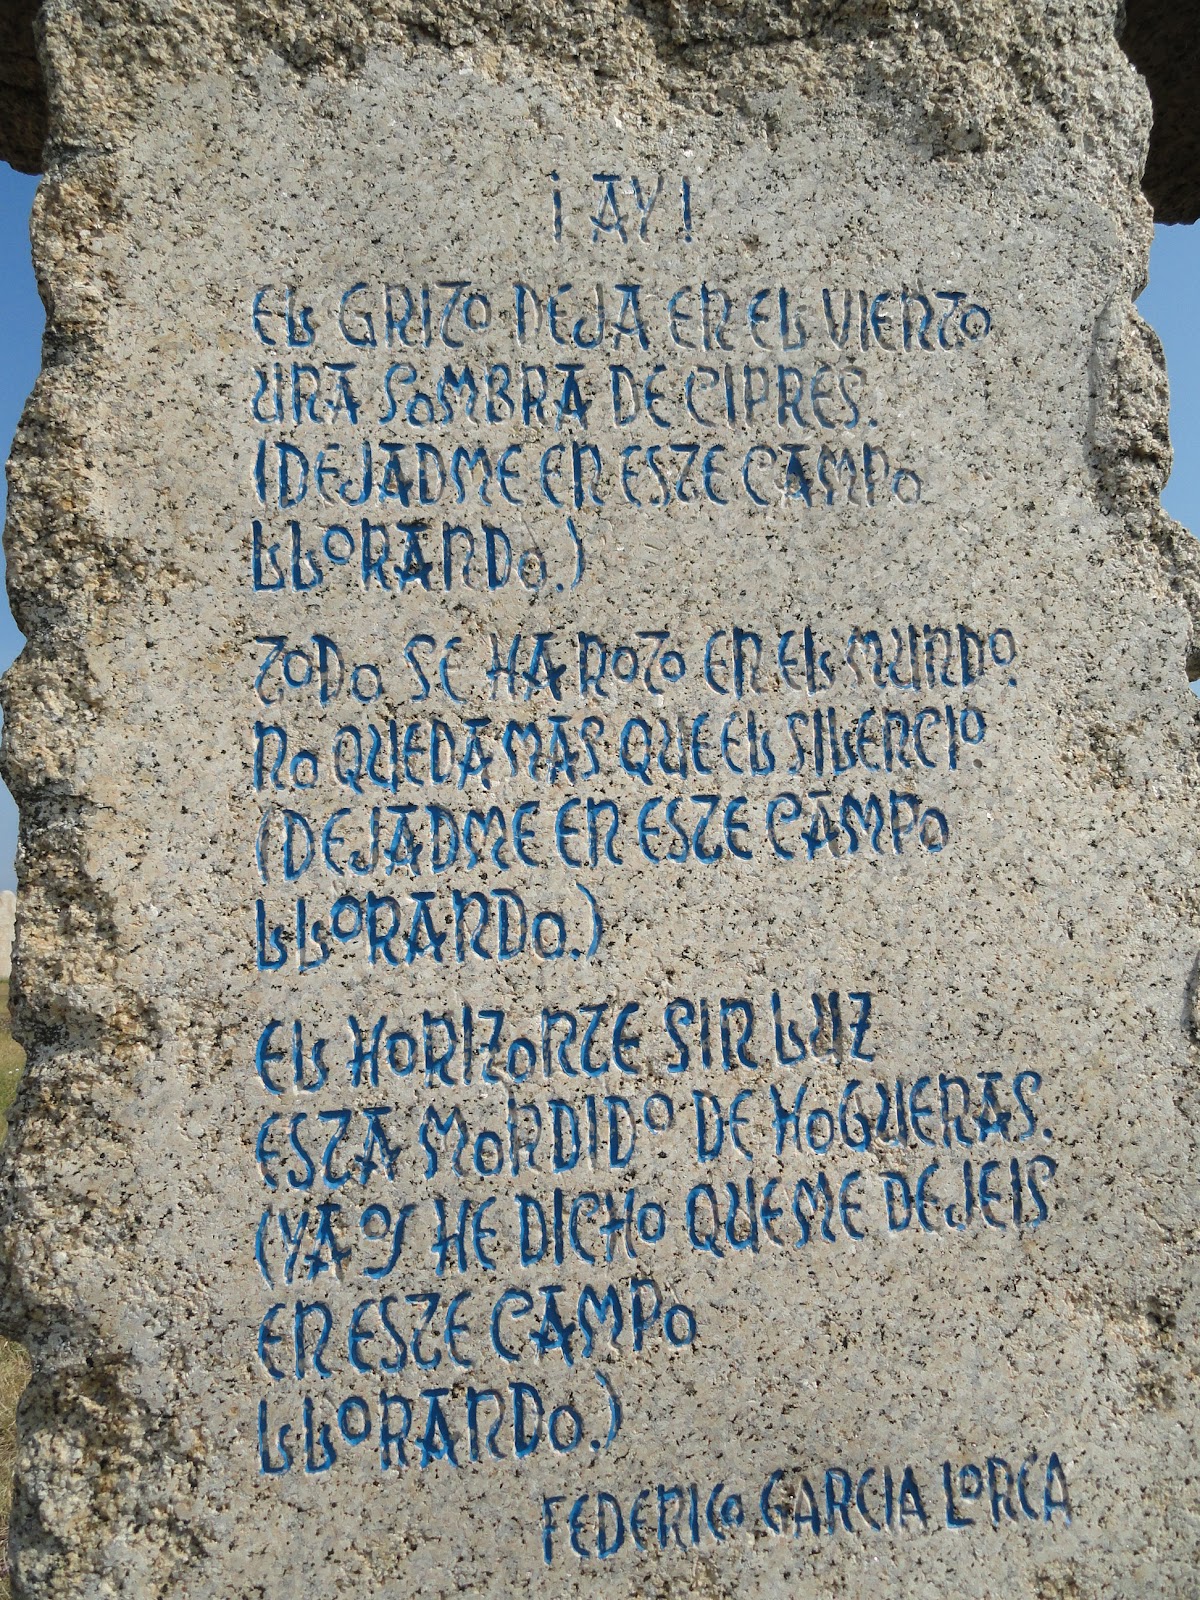 ¡ AY !
EL GRITO DEJA EN EL VIENTO
UNA SOMBRA DE CIPRES.
(DEJADME EN ESTE CAMPO
LLORANDO.)
TODO SE HA ROTO EN EL MUNDO.
NO QUEDA MAS QUE EL SILENCIO
(DEJADME EN ESTE CAMPO
LLORANDO.)
EL HORIZONTE SIN LUZ
ESTA MORDIDO DE HOGUERAS.
(YA OS HE DICHO QUE ME DEJEIS
EN ESTE CAMPO
LLORANDO.)
FEDERICO GARCIA LORCA